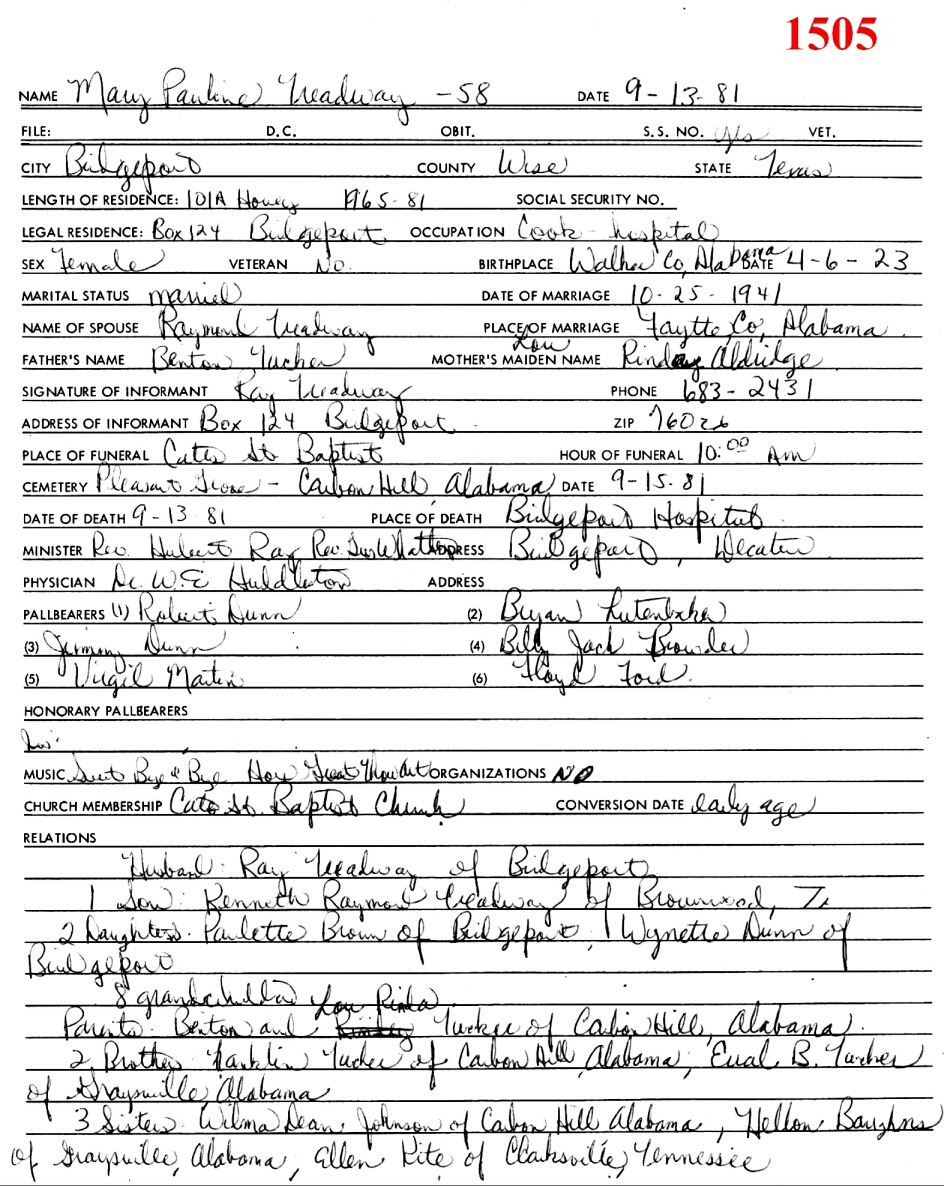 1505
NAME Mary Pauline Treadway -58 DATE 9-13-81
FILE: D.C. OBIT. S.S. NO. yes VET.
CITY Bridgeport COUNTY Wise STATE Texas
LENGTH OF RESIDENCE: 101A Hovey 1965-81 SOCIAL SECURITY NO.
LEGAL RESIDENCE: Box 124 Bridgeport OCCUPATION Cook - hospital
SEX Female VETERAN No. BIRTHPLACE Walker Co, Alabama DATE 4-6-23
MARITAL STATUS married DATE OF MARRIAGE 10-25-1941
NAME OF SPOUSE Raymond Treadway PLACE OF MARRIAGE Faytte Co, Alabama
FATHER'S NAME Benton Tucker MOTHER'S MAIDEN NAME Lou Rinda Aldridge
SIGNATURE OF INFORMANT Ray Treadway PHONE 683-2431
ADDRESS OF INFORMANT Box 124 Bridgeport ZIP 76026
PLACE OF FUNERAL Cates St Baptist HOUR OF FUNERAL 10:00 Am
CEMETERY Pleasant Grove - Carbon Hill, Alabama DATE 9-15-81
DATE OF DEATH 9-13-81 PLACE OF DEATH Bridgeport Hospital
MINISTER Rev. Hubert Ray Rev. ADDRESS Bridgeport, Decatur
PHYSICIAN Dr. W.E. Huddleston ADDRESS
PALLBEARERS (1) Robert Dunn (2) Bryan
(3) Jimmy Dunn (4) Billy Jack Browder
(5) Virgil Martin (6) Floyd Ford
HONORARY PALLBEARERS
MUSIC Sweet Bye & Bye How Great Thou Art ORGANIZATIONS NO
CHURCH MEMBERSHIP Cates St. Baptist Church CONVERSION DATE early age
RELATIONS
Husband: Ray Treadway of Bridgeport
1 Son: Kenneth Raymond Treadway of Brownwood, Tx
2 Daughters: Paulette Brown of Bridgeport; Wynette Dunn of
Bridgeport
8 grandchildren Lou Rinda
Parents: Benton and Tucker of Carbon Hill, Alabama
2 Brothers Franklin Tucker of Carbon Hill, Alabama, Eual B. Tucker
of Graysville, Alabama
3 Sisters Wilma Dean Johnson of Carbon Hill Alabama, Hellon Baughns
of Graysville, Alabama, Ellen Kite of Clarksville, Tennessee